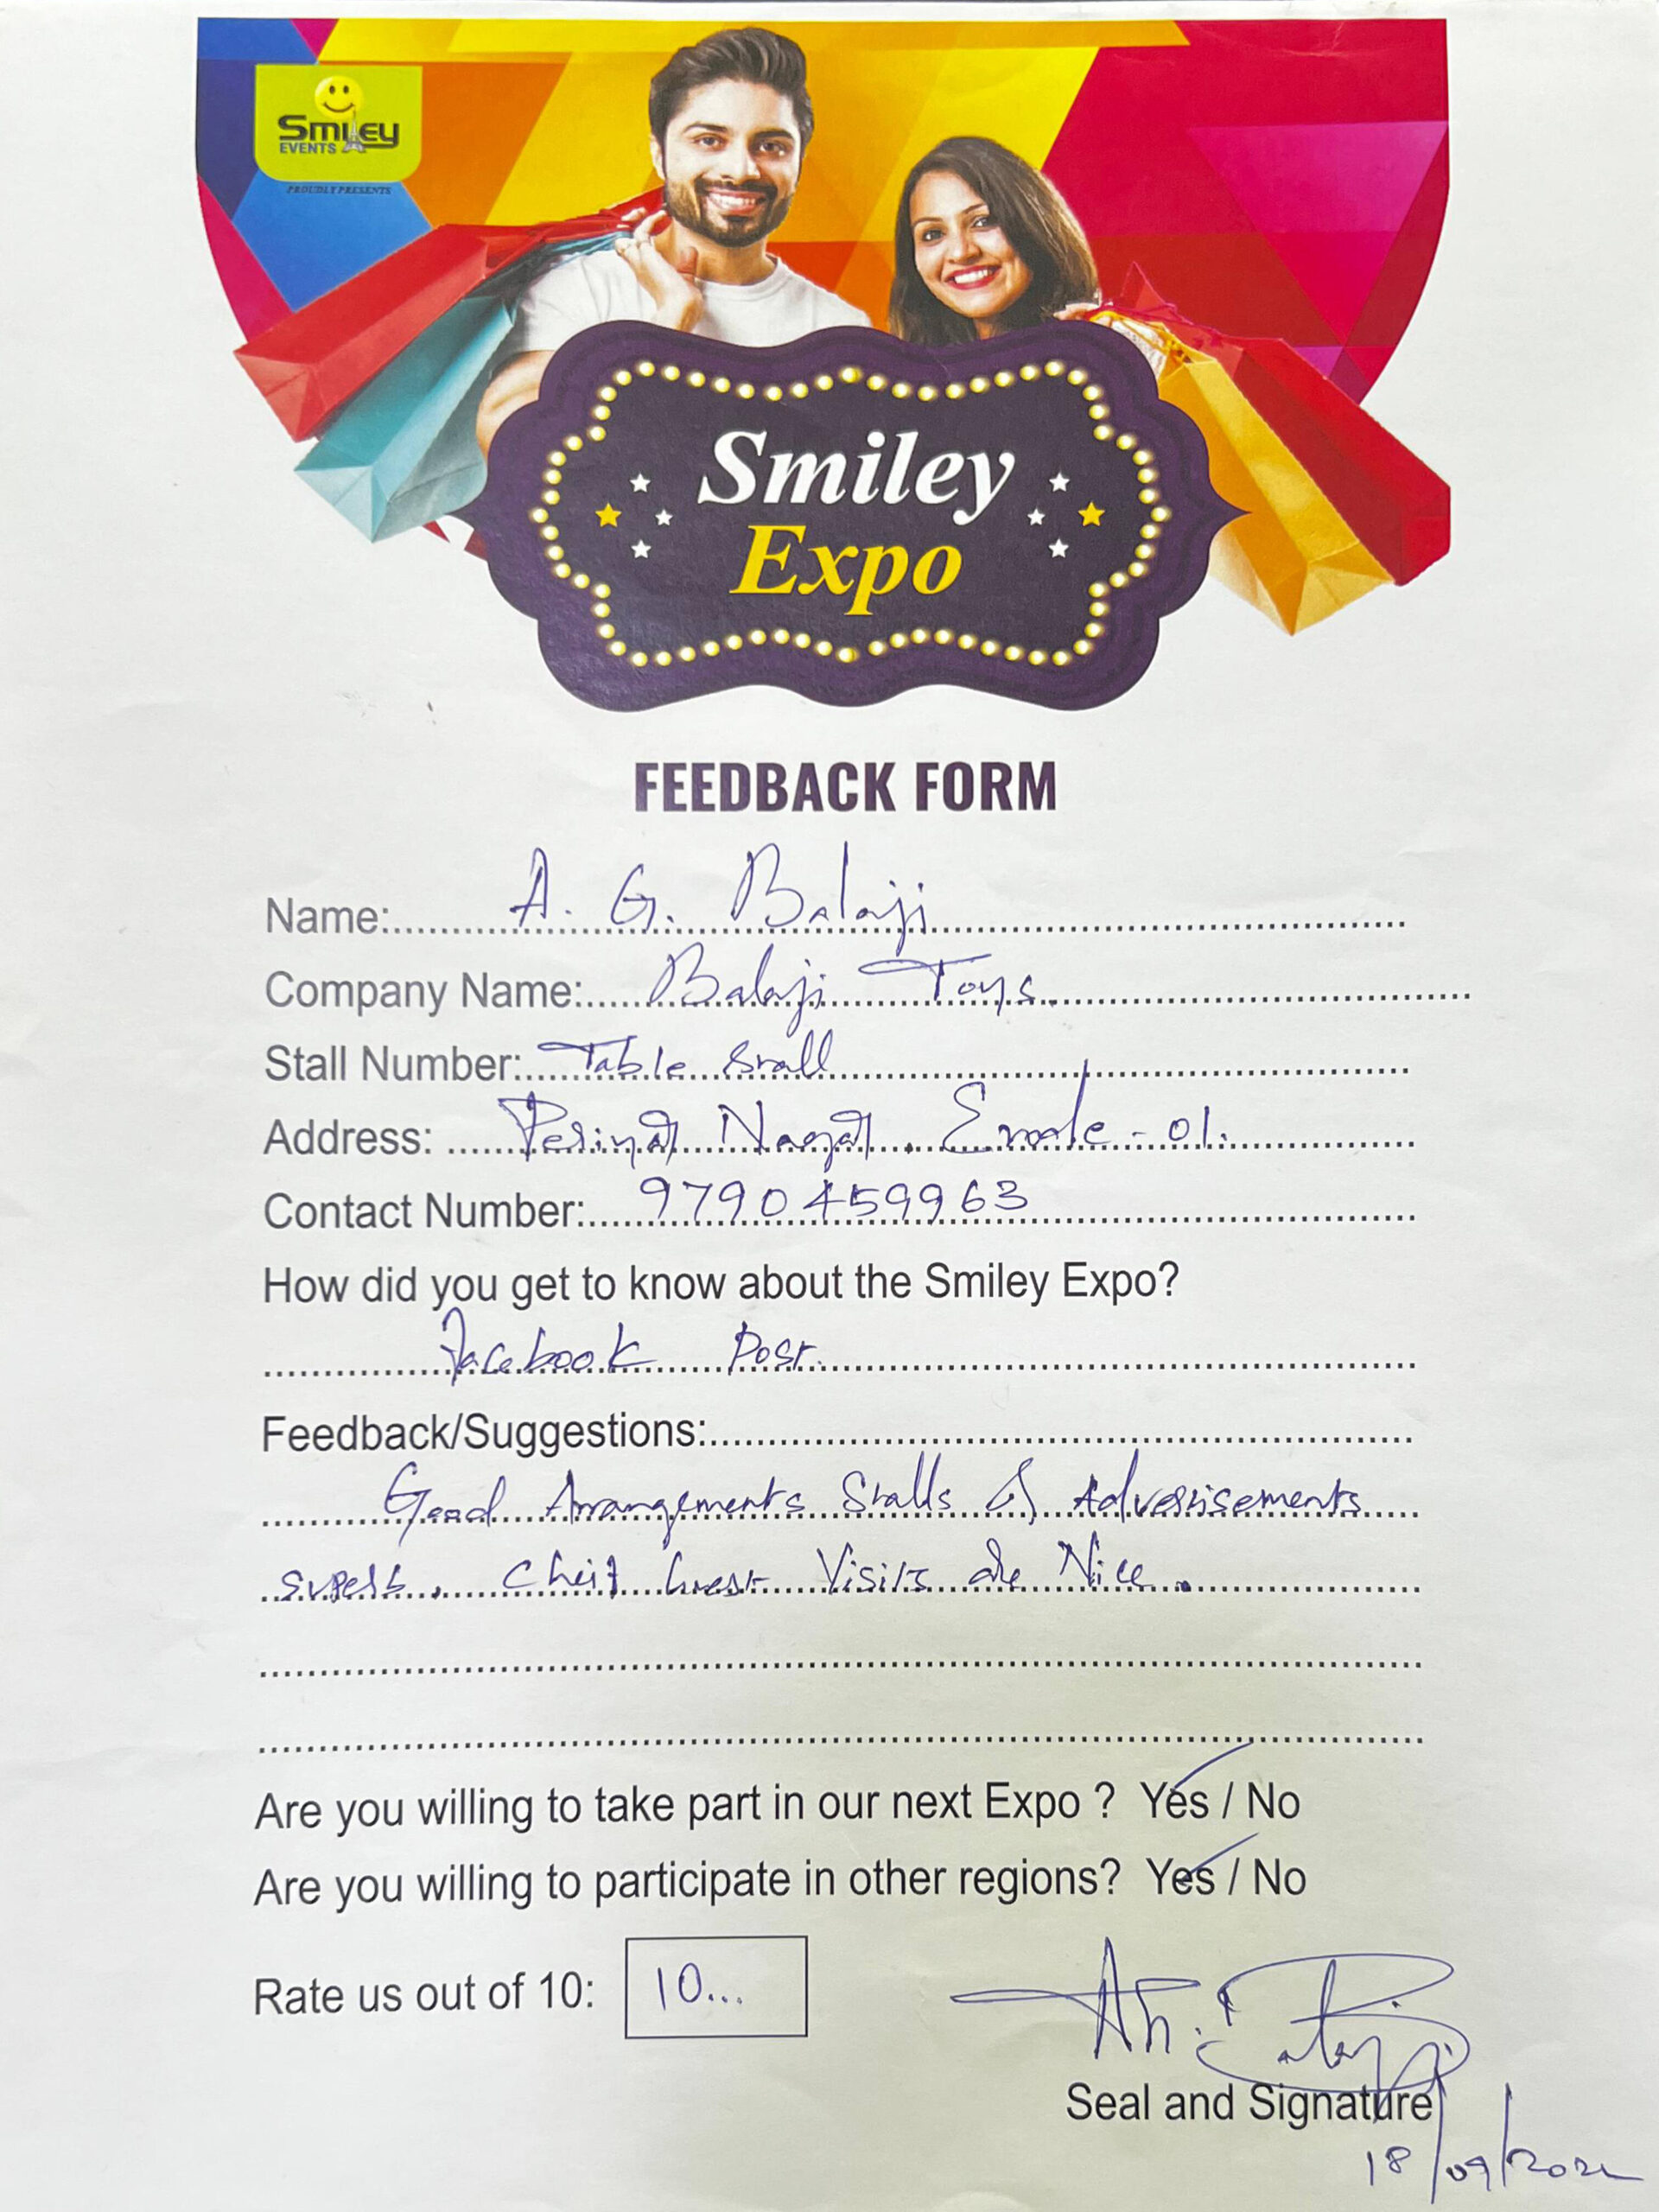 Smiley
EVENTS
PROUDLY PRESENTS
Smiley
Expo
FEEDBACK FORM
Name: A. G. Balaji
Company Name: Balaji Toys.
Stall Number: Table Stall
Address: Periyar Nagar. Erode - 01.
Contact Number: 9790459963
How did you get to know about the Smiley Expo?
Facebook Post.
Feedback/Suggestions:
Good Arrangements Stalls & Advertisements
superb. Cheif Guest Visits are Nice.
Are you willing to take part in our next Expo ? Yes / No
Are you willing to participate in other regions? Yes / No
Rate us out of 10: 10...
Seal and Signature
18/09/2022